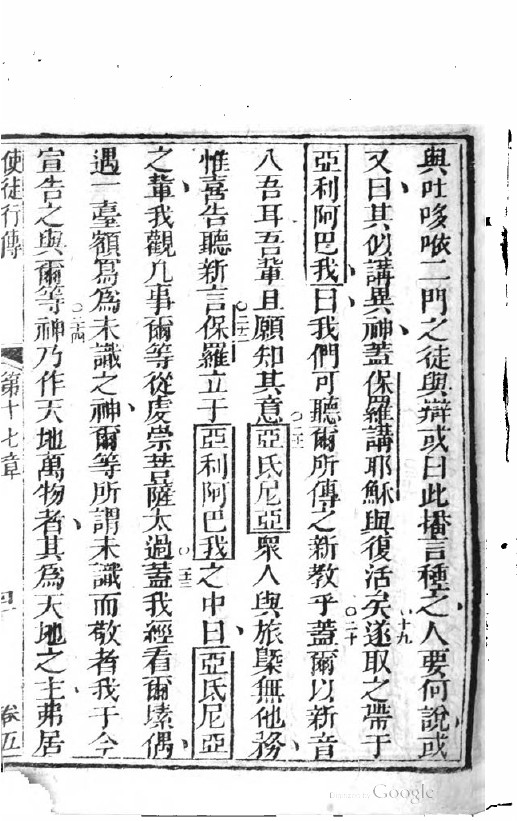 與吐哆㖠二門之徒與辯或曰此撒言種之人要何說或
又曰其似講異神蓋保羅講耶穌與復活矣遂取之帶于
亞利阿巴我曰我們可聽爾所傳之新教乎蓋爾以新音
入吾耳吾輩且願知其意亞氐尼亞眾人與旅槩無他務
惟喜告聽新言保羅立于亞利阿巴我之中曰亞氐尼亞
之輩我觀凡事爾等從虔崇菩薩太過蓋我經看爾塐偶
遇一臺額寫為未識之神爾等所謂未識而敬者我于今
宣告之與爾等神乃作天地萬物者其為天地之主弗居
使徒行傳 第十七章 四 卷五
十九
二十
二十一
二十二
二十三
二十四
Digitized by Google